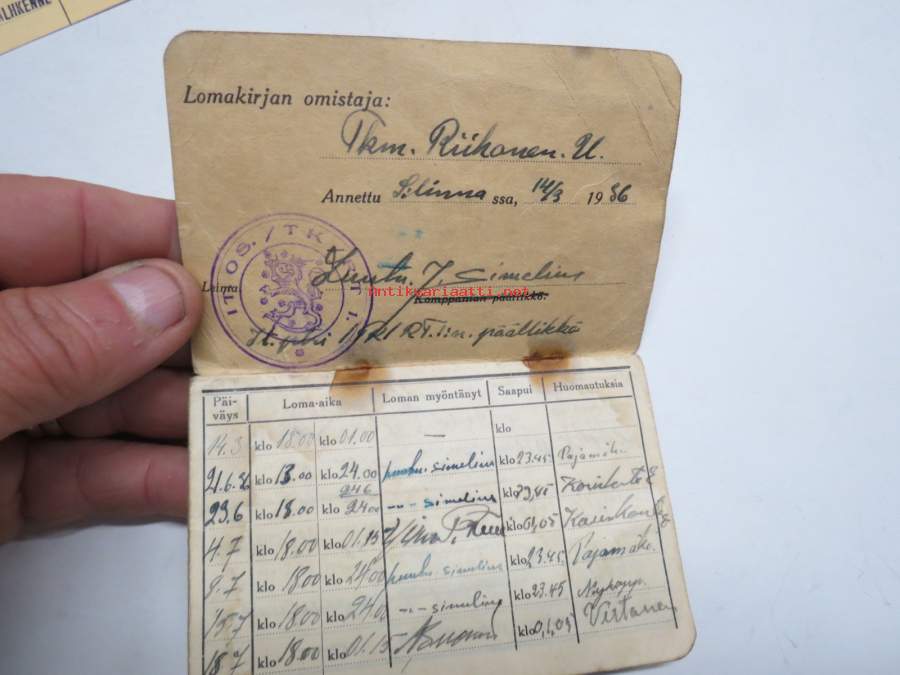 LIIKENNE
Lomakirjan omistaja:
Tkm. Riihonen. U.
Annettu S:linna ssa, 14/3 1936
IT OS. / TKJ RT 1.
Leima Luutn. J. Simelius
antikvariaatti.net
Komppanian päällikkö.
It. ptri / RT. 1:n. päällikkö
Päiväys Loma-aika Loman myöntänyt Saapui Huomautuksia
14.3 klo 18.00 klo 01.00 — klo
21.6.36 klo 13.00 klo 24.00 simelius klo 23.45 Pajamäk.
24.6
23.6 klo 18.00 klo 24.00 -"- simelius klo 23.45
4.7 klo 18.00 klo 01.15 klo 01,05
8.7 klo 18.00 klo 24.00 simelius klo 23.45 Pajamäk.
15.7 klo 18.00 klo 24.0 -"- simelius klo 23.45
18.7 klo 18.00 klo 01.15 klo 01.05 Virtanen